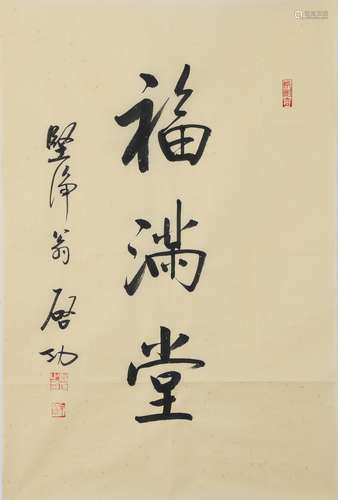 福满堂
坚净翁 启功